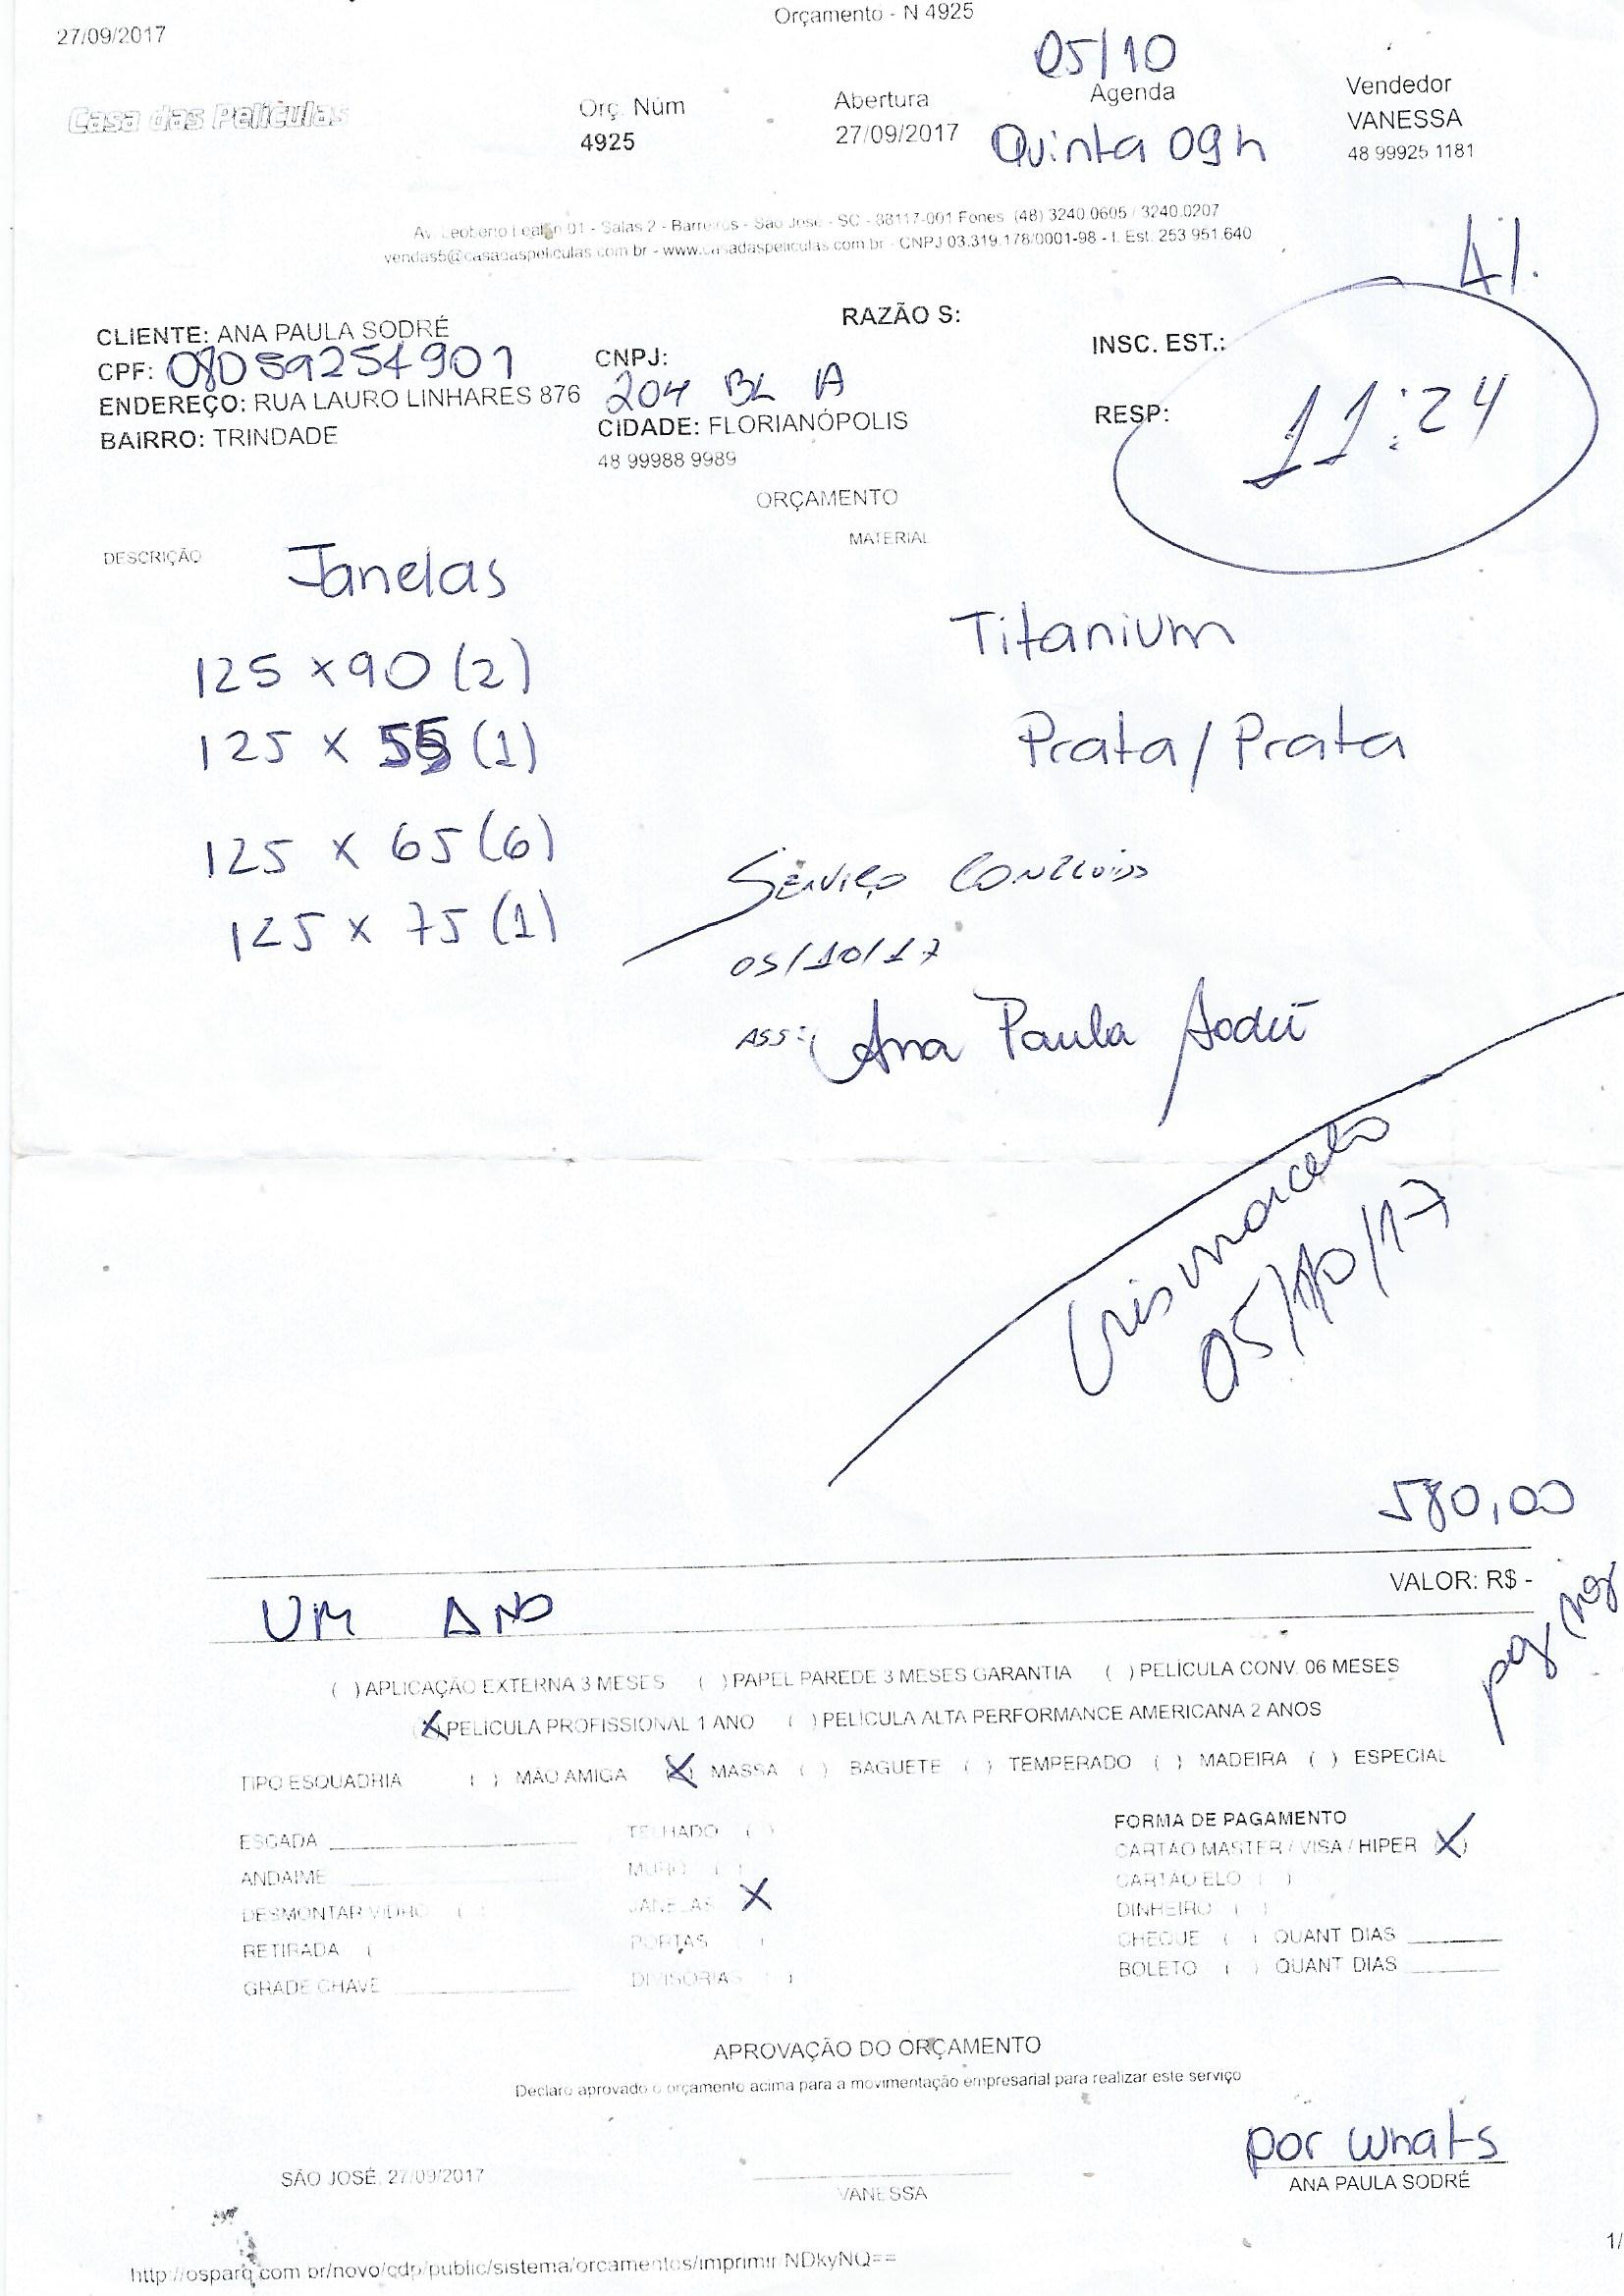 27/09/2017
Orçamento - N 4925
05/10
Casa das Películas
Orç. Núm
4925
Abertura
27/09/2017
Agenda
Quinta 09h
Vendedor
VANESSA
48 99925 1181
Av. Leoberto Leal, n 01 - Salas 2 - Barreiros - São José - SC - 88117-001 Fones (48) 3240.0605 / 3240.0207
vendas5@casadaspeliculas.com.br - www.casadaspeliculas.com.br - CNPJ 03.319.178/0001-98 - I. Est. 253.951.640
CLIENTE: ANA PAULA SODRÉ
RAZÃO S:
CPF: 08059254901
CNPJ:
INSC. EST.:
ENDEREÇO: RUA LAURO LINHARES 876
204 BL A
BAIRRO: TRINDADE
CIDADE: FLORIANÓPOLIS
RESP:
11:24
48 99988 9989
ORÇAMENTO
DESCRIÇÃO
MATERIAL
Janelas
Titanium
125 x 90 (2)
Prata/Prata
125 x 55 (1)
125 x 65 (6)
125 x 75 (1)
Serviço Concluido
05/10/17
ASS: Ana Paula Sodré
Crismarcelo
05/10/17
580,00
VALOR: R$ -
UM ANO
( ) APLICAÇÃO EXTERNA 3 MESES ( ) PAPEL PAREDE 3 MESES GARANTIA ( ) PELÍCULA CONV. 06 MESES
(X) PELÍCULA PROFISSIONAL 1 ANO ( ) PELÍCULA ALTA PERFORMANCE AMERICANA 2 ANOS
TIPO ESQUADRIA ( ) MÃO AMIGA (X) MASSA ( ) BAGUETE ( ) TEMPERADO ( ) MADEIRA ( ) ESPECIAL
ESCADA
ANDAIME
DESMONTAR VIDRO ( )
RETIRADA (
GRADE CHAVE
TELHADO ( )
MURO ( )
JANELAS X
PORTAS
DIVISÓRIAS ( )
FORMA DE PAGAMENTO
CARTÃO MASTER / VISA / HIPER (X)
CARTÃO ELO ( )
DINHEIRO ( )
CHEQUE ( ) QUANT DIAS
BOLETO ( ) QUANT DIAS
APROVAÇÃO DO ORÇAMENTO
Declaro aprovado o orçamento acima para a movimentação empresarial para realizar este serviço
por whats
SÃO JOSÉ, 27/09/2017
VANESSA
ANA PAULA SODRÉ
1/
http://osparq.com.br/novo/cdp/public/sistema/orcamentos/imprimir/NDkyNQ==